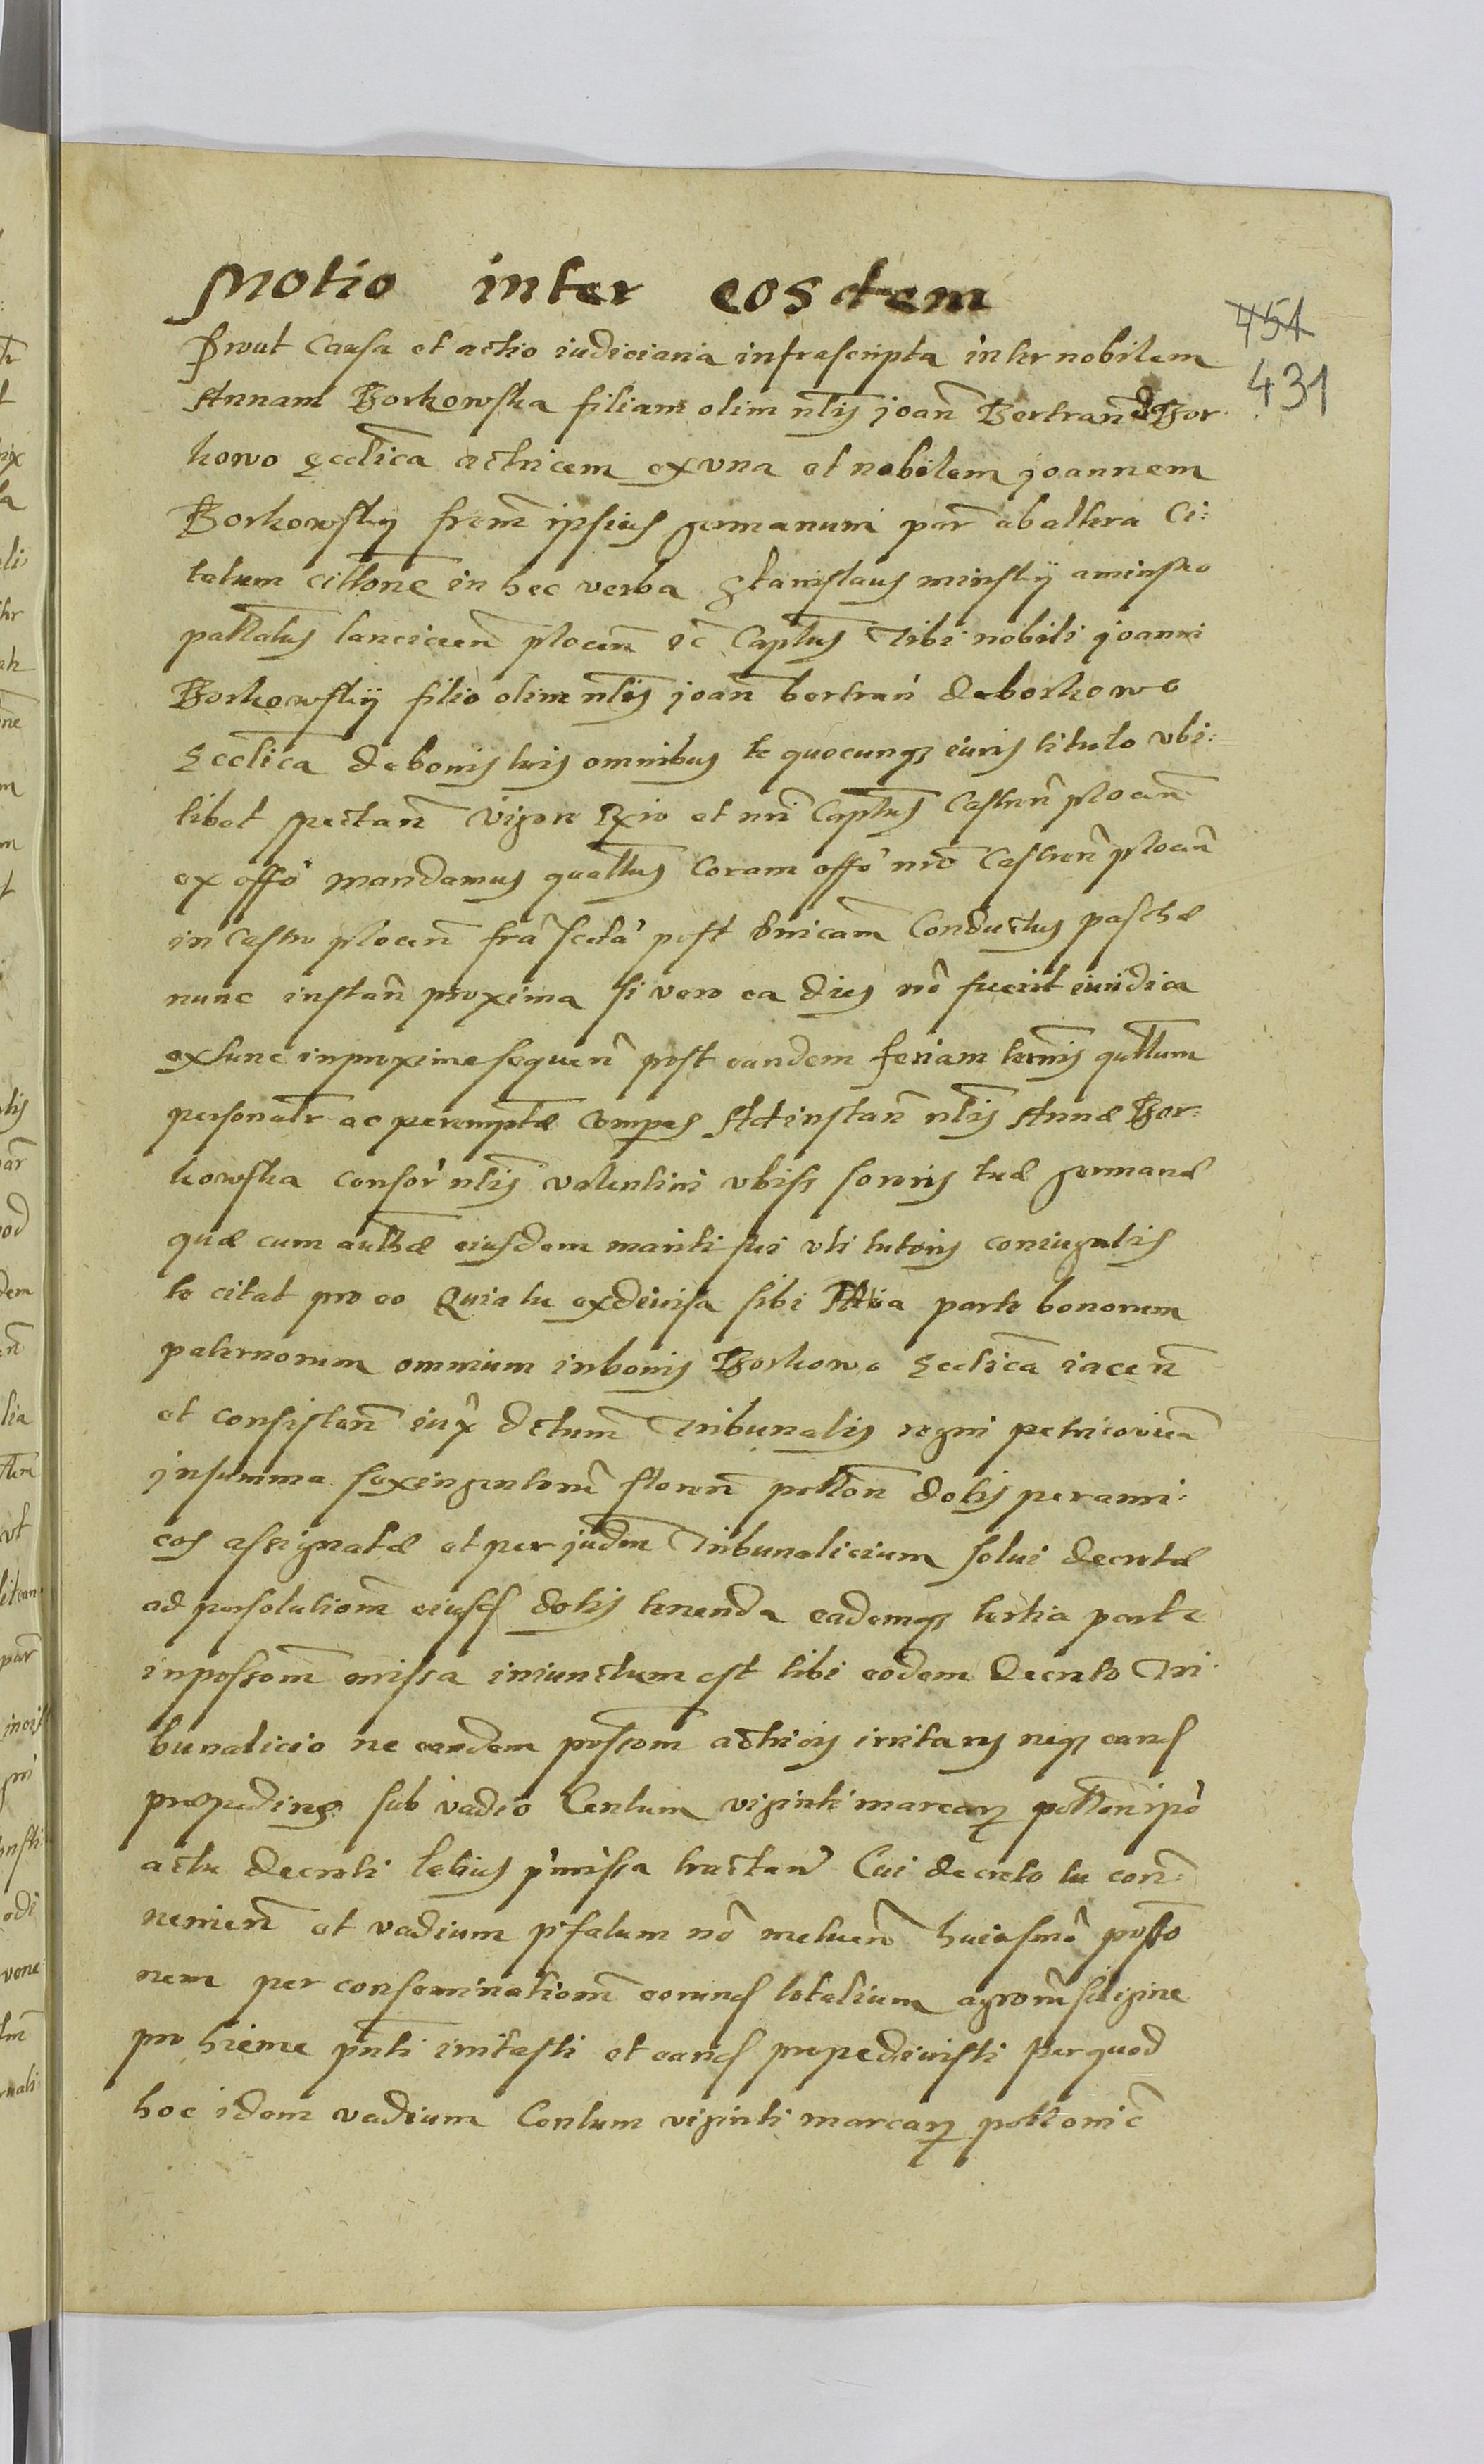 Motio inter eosdem
451
431
Prout Causa et actio iudiciaria infrascripta inter nobilem
Annam Borkowska filiam olim nlis joan Bertran de Bor
kowo ecclica actricem ex una et nobilem joannem
Borkowsky frem ipsius germanum par ab altera Ci:
tatum cittone in hec verba Stanislaus minsky a minsko
pallatus lancicien plocen &c Capltus Tibi nobili joanni
Borkowsky filio olim nlis joan bertran de borkowo
Ecclica de bonis tuis omnibus te quocunq iuris titulo ubi:
libet spectan Vigore et mri Capltus Castren plocen
ex offo mandamus quattus Coram offo nro Castren plocen
in Castro plocen fra scda post dnicam Conductus paschæ
nunc instan proxima si vero ea dies no fuerit iuridica
extunc in proxime sequen post eandem feriam termis quttum
personalr ac peremptæ Compes Ad instan nlis Annæ Bor:
kowska consor nlis valentini ubiss sororis tuæ germanæ
quæ cum authæ eiusdem mariti sui uti tutoris coniugalis
te citat pro eo Quia tu ex divisa sibi parte bonorum
paternorum omnium in bonis Borkowo Ecclica iacen
et consisten iux dctum Tribunalis regni petricovien
in summa sexingentorum floren pollon dotis per ami:
cos assignatæ et per judm Tribunalicium solui decretæ
ad persolutionem eiusd dotis tenenda eademq tertia parte
in possom missa iniunctum est tibi eodem Decreto Tri
bunalicio ne eandem possom actricis irritares neq eand
præpedires sub vadio Centum viginti marcar pollon ipo
actu decreti latius pmissa tractan Cui decreto tu con:
nenien et vadium pfatum no metuen huiusmo posso
nem per conseminationem eorund totalium agrorum siligine
pro hieme pnti irritasti et eand prepedivisti per quod
hoc idem vadium Centum viginti marcar pollonic